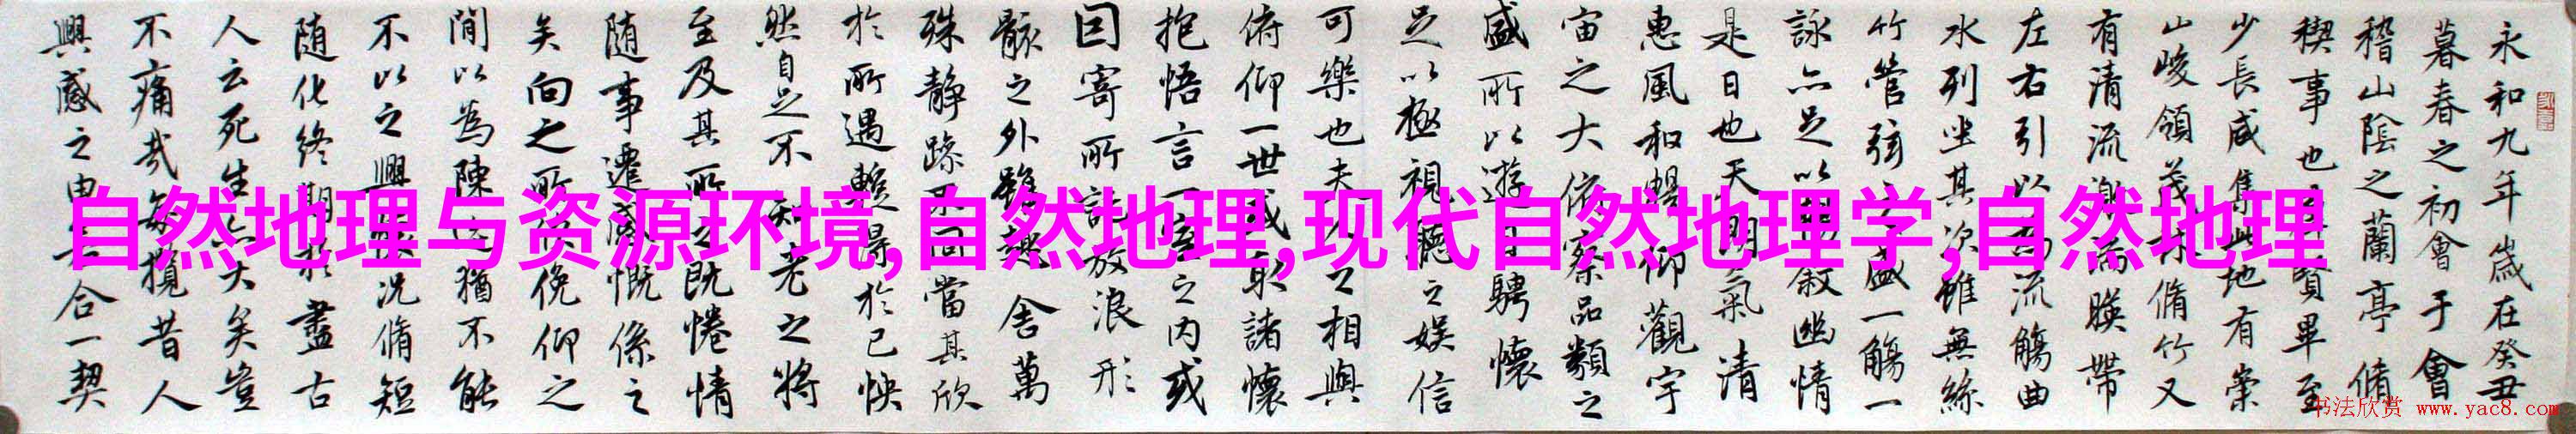 永和九年歲在癸丑
暮春之初會于會
稽山陰之蘭亭脩
稧事也賢畢至
少長咸集此地有崇
山峻領茂林脩竹又
有清流激湍暎帶
左右引以為流觴曲
水列坐其次雖無絲
竹管弦之盛一觴一
詠亦足以暢敘幽情
是日也天朗氣清
惠風和暢仰觀宇
宙之大俯察品類之
盛所以遊目騁懷
足以極視聽之娛信
可樂也夫人之相與
俯仰一世或取諸懷
抱悟言一室之內或
因寄所託放浪形
骸之外雖趣舍萬
殊靜躁不同當其欣
於所遇蹔得於己怏
然自足不知老之將
至及其所之既惓情
随事遷感慨係之
矣向之所欣俛仰之
閒以為陳迹猶不能
不以之興懷況脩短
随化終期於盡古
人云死生亦大矣豈
不痛哉每攬昔人
興感之由若合一契
自然地理与资源环境,自然地理,现代自然地理学,自然地理
书法欣赏 www.yac8.com